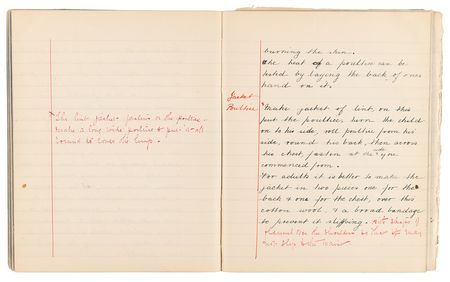 The lint jacket
make a long wide poultice & put it all
round to cover the lungs.
burning the skin.
The heat of a poultice can be
tested by laying the back of ones
hand on it.
Jacket
Poultice
Make jacket of lint, on this
put the poultice, turn the child
on to his side, roll poultice from his
side, round his back, then across
his chest, fasten at the side you
commenced from.
For adults it is better to make the
jacket in two pieces one for the
back & one for the chest, over this
cotton wool, & a broad bandage
to prevent it slipping. With straps of
flannel over the shoulders so that it may
not slip to the waist